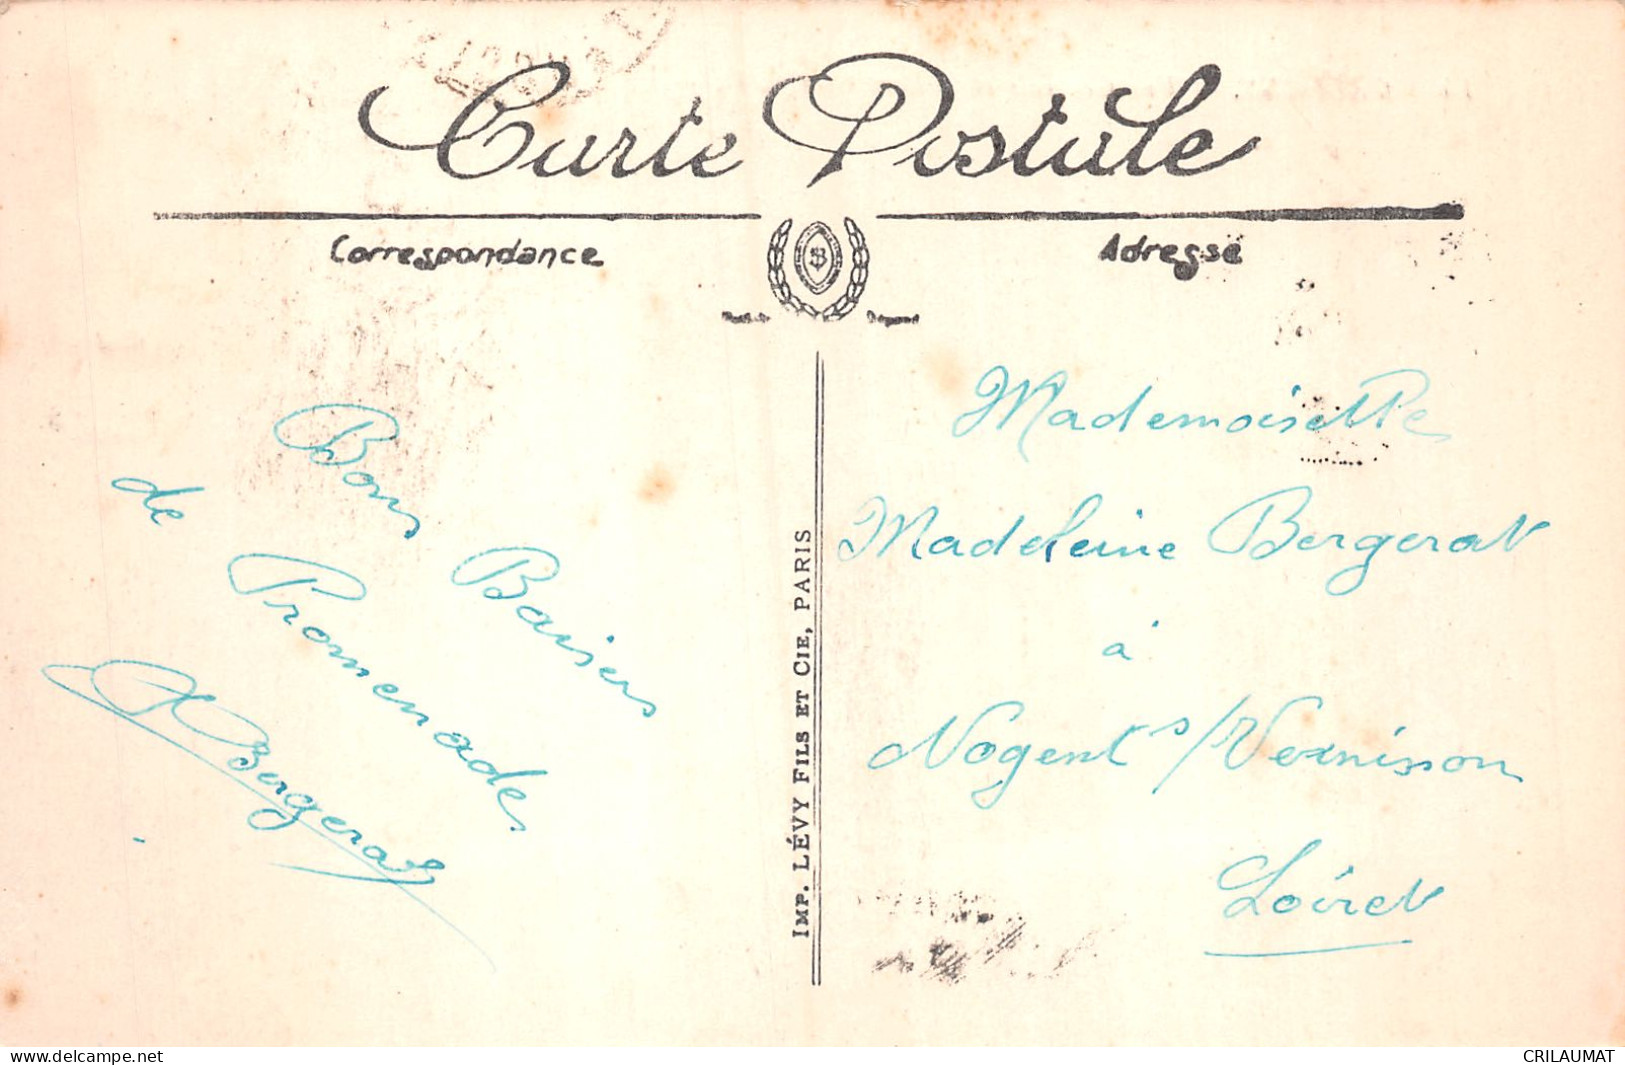 Carte Postale
Correspondance
Adresse
Bons Baisers
de Promenade
Bergerat
IMP. LÉVY FILS ET CIE, PARIS
Mademoiselle
Madeleine Bergerat
à
Nogent s/Vernisson
Loiret
www.delcampe.net
CRILAUMAT